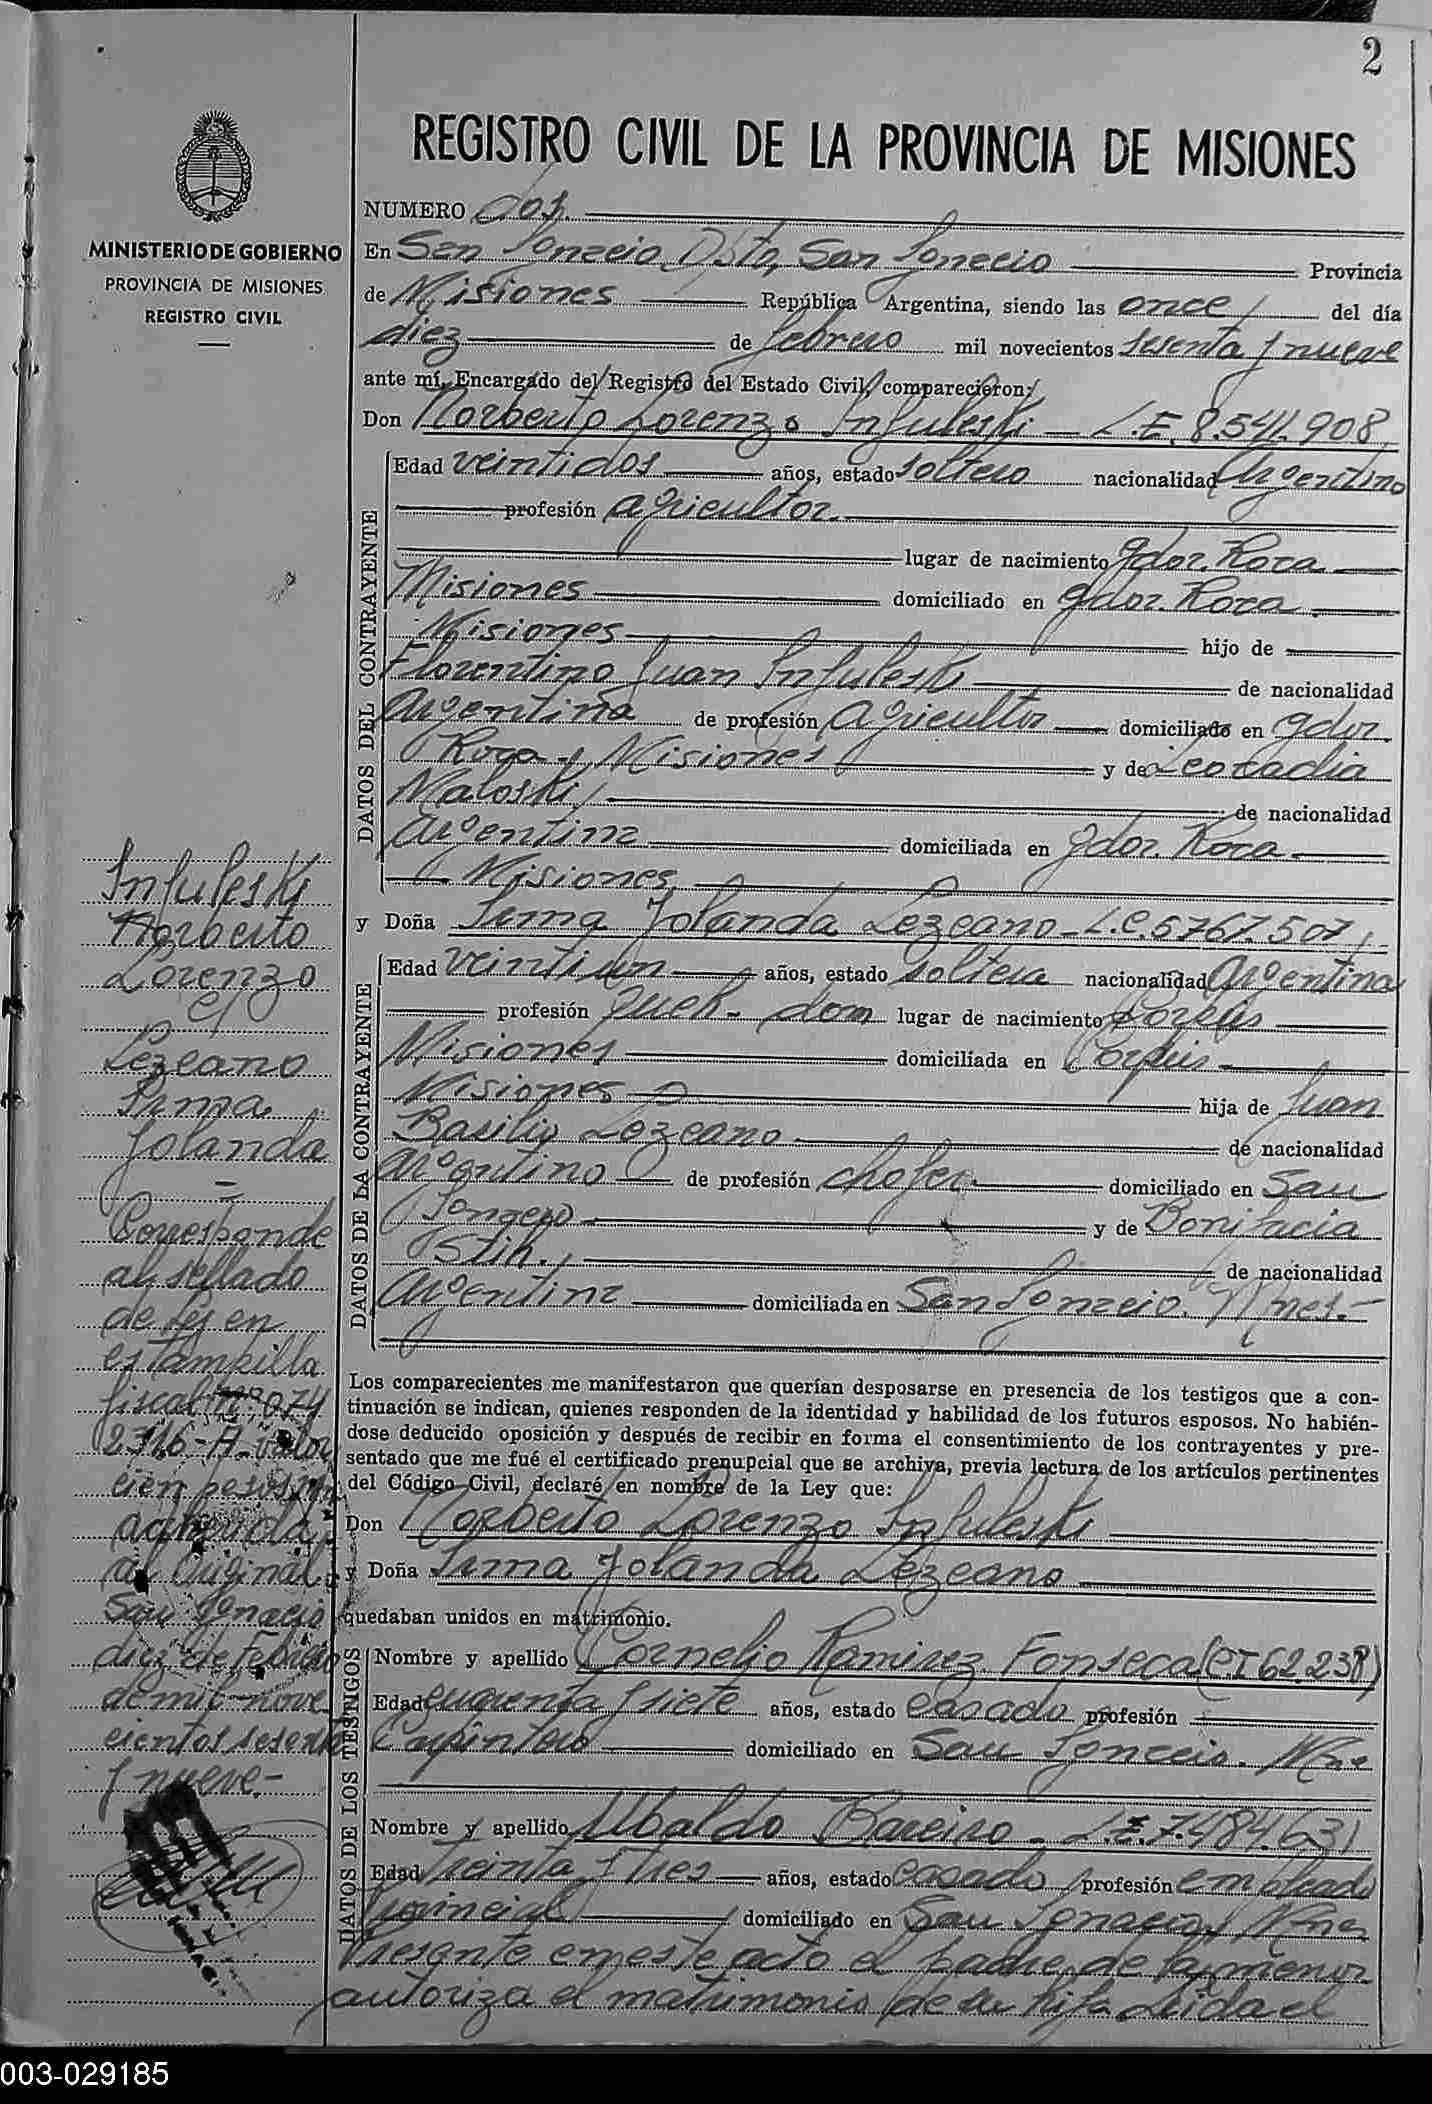 2
REGISTRO CIVIL DE LA PROVINCIA DE MISIONES
MINISTERIO DE GOBIERNO
PROVINCIA DE MISIONES
REGISTRO CIVIL
NUMERO dos.
En San Ignacio, Dpto, San Ignacio Provincia
de Misiones República Argentina, siendo las once, del día
diez de febrero mil novecientos sesenta y nueve
ante mí, Encargado del Registro del Estado Civil, comparecieron:
Don Norberto Lorenzo Infuleski - L.E. 8.541.908,
DATOS DEL CONTRAYENTE
Edad veintidos años, estado soltero nacionalidad Argentino
profesión agricultor.
lugar de nacimiento gdor. Roca
Misiones domiciliado en gdor. Roca
Misiones hijo de
Florentino Juan Infuleski de nacionalidad
Argentina de profesión Agricultor domiciliado en gdor.
Roca, Misiones y de Leocadia
Maloski, de nacionalidad
argentina domiciliada en gdor. Roca
Misiones,
y Doña Irma Yolanda Lezcano - L.C. 5767.507,
DATOS DE LA CONTRAYENTE
Edad veintiun años, estado soltera nacionalidad Argentina
profesión queh. dom lugar de nacimiento Corpus
Misiones domiciliada en Corpus
Misiones hija de Juan
Basilio Lezcano de nacionalidad
argentino de profesión chofer domiciliado en San
Ignacio y de Bonifacia
de nacionalidad
Argentina domiciliada en San Ignacio. Mnes.
Los comparecientes me manifestaron que querían desposarse en presencia de los testigos que a con-
tinuación se indican, quienes responden de la identidad y habilidad de los futuros esposos. No habién-
dose deducido oposición y después de recibir en forma el consentimiento de los contrayentes y pre-
sentado que me fué el certificado prenupcial que se archiva, previa lectura de los artículos pertinentes
del Código Civil, declaré en nombre de la Ley que:
Don Norberto Lorenzo Infuleski
y Doña Irma Yolanda Lezcano
quedaban unidos en matrimonio.
DATOS DE LOS TESTIGOS
Nombre y apellido Cornelio Ramirez Fonseca (CI 62.238)
Edad cuarenta y siete años, estado casado profesión
Carpintero domiciliado en San Ignacio. Mnes
Nombre y apellido Ubaldo Bareiro - L.E. 7.484.631
Edad treinta y tres años, estado casado, profesión empleado
Provincial domiciliado en San Ignacio, Mnes
Presente en este acto el padre de la menor
autoriza el matrimonio de su hija Leida el
Infuleski
Norberto
Lorenzo
c/
Lezcano
Irma
Yolanda
=
Corresponde
al sellado
de ley en
estampilla
fiscal nº 074
2316-A- valor
cien pesos m/n
adherida
al original
San Ignacio
diez de febrero
de mil nove
cientos sesenta
y nueve.-
003-029185